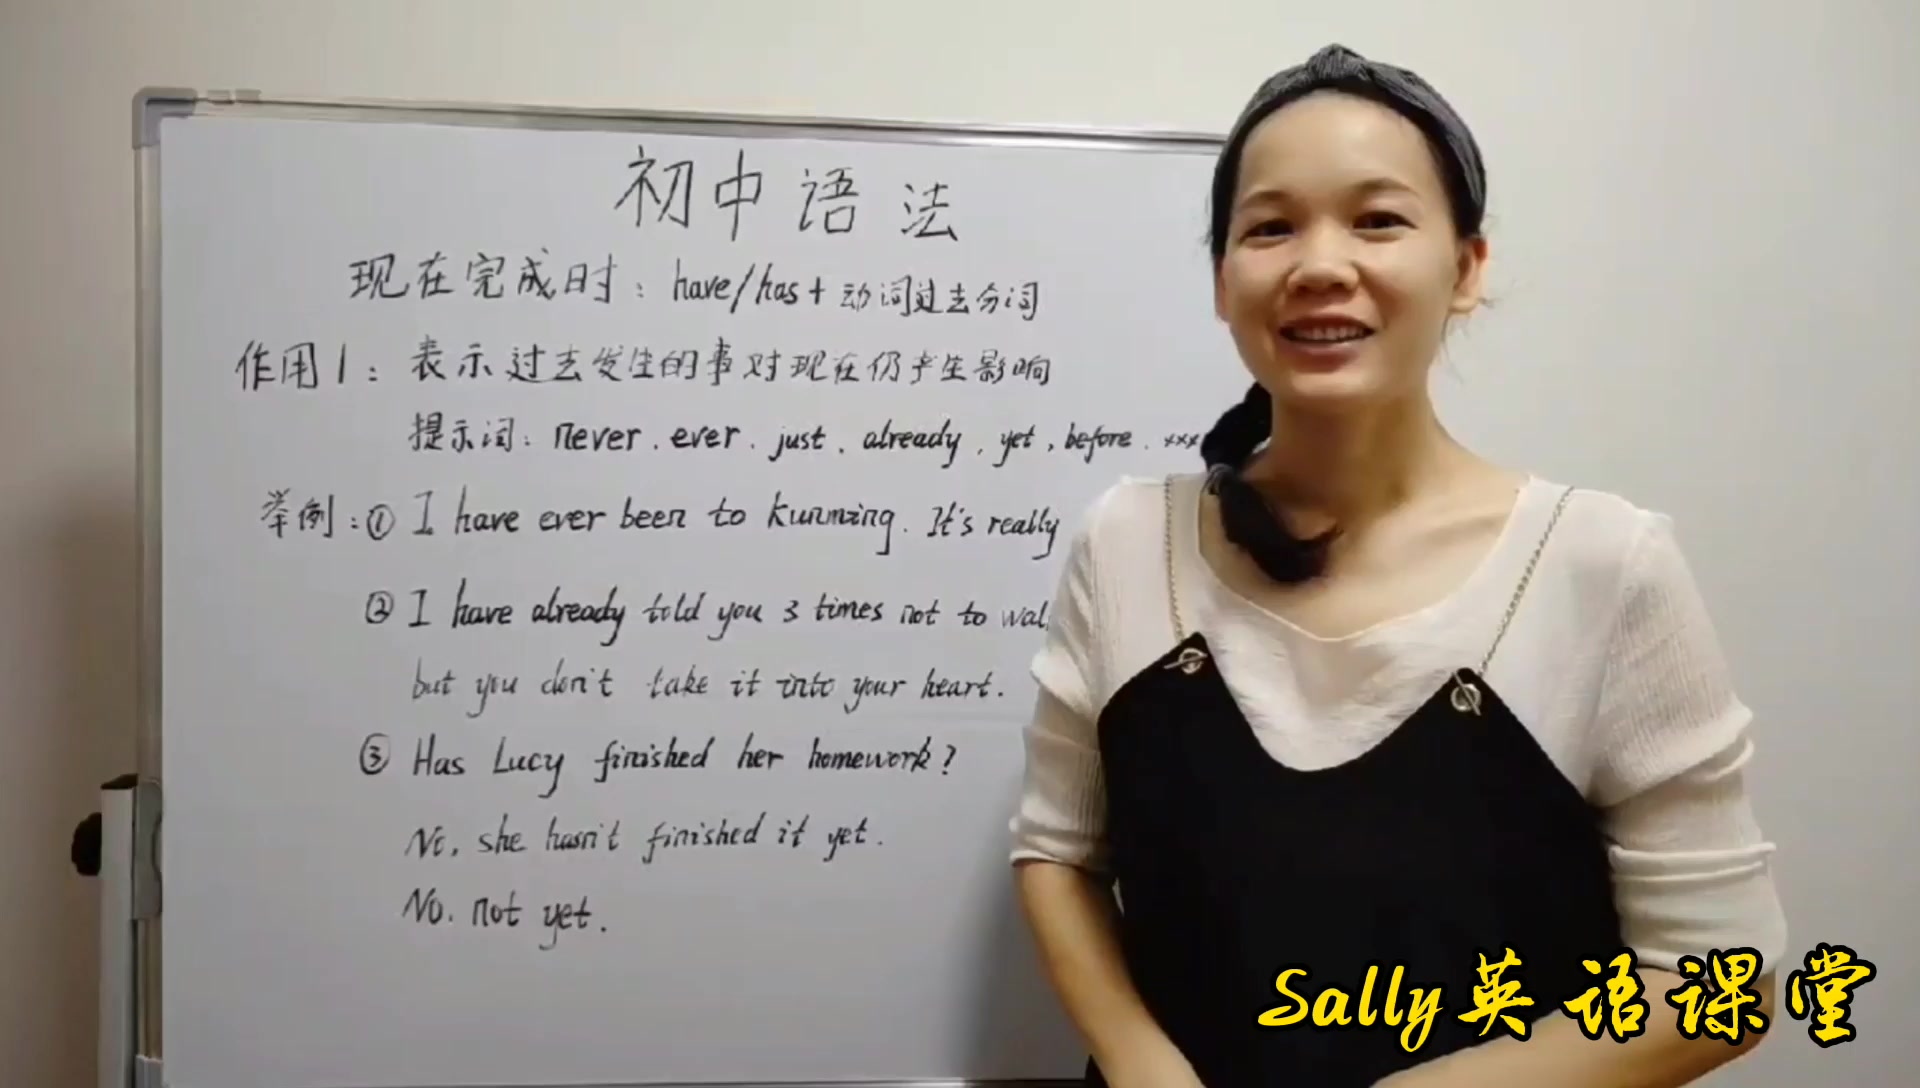 初中语法
现在完成时：have/has+动词过去分词
作用1：表示过去发生的事对现在仍产生影响
提示词：never. ever. just. already, yet, before. xxx
举例：① I have ever been to kunming. It's really
② I have already told you 3 times not to
but you don't take it into your heart.
③ Has Lucy finished her homework?
No, she hasn't finished it yet.
No. not yet.
Sally英语课堂